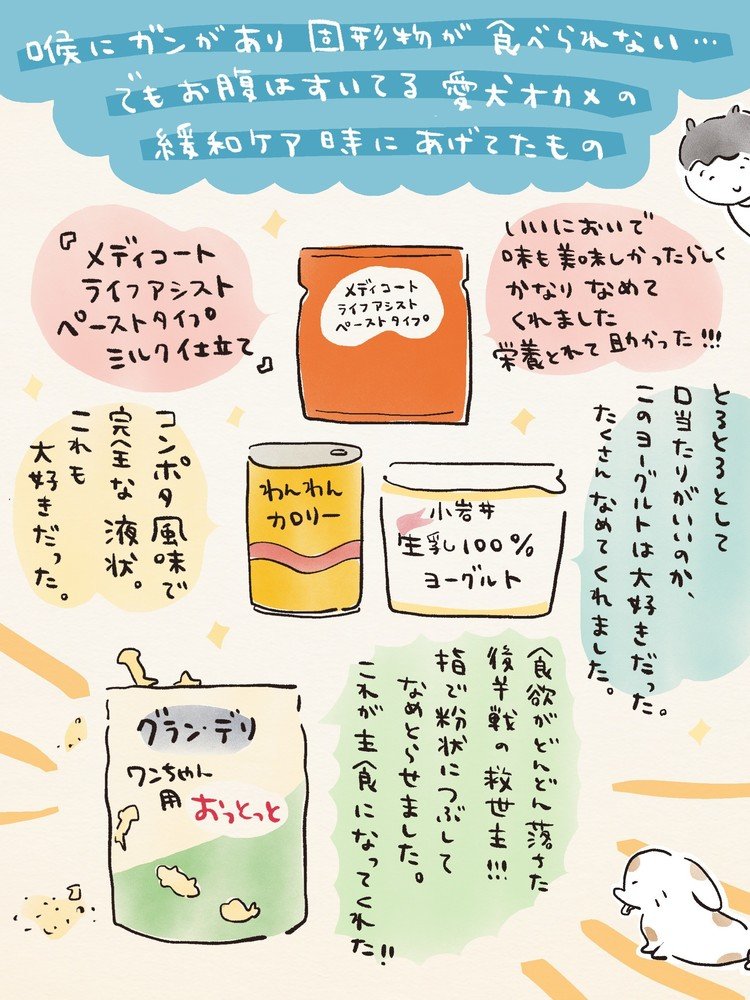 喉にガンがあり 固形物が 食べられない…
でもお腹はすいてる 愛犬オカメの
緩和ケア時にあげてたもの
『メディコート
ライフアシスト
ペーストタイプ
ミルク仕立て』
メディコート
ライフアシスト
ペーストタイプ
いいにおいで
味も美味しかったらしく
かなりなめて
くれました
栄養とれて助かった!!!
コンポタ風味で
完全な液状。
これも
大好きだった。
わんわん
カロリー
小岩井
生乳100%
ヨーグルト
とろとろとして
口当たりがいいのか、
このヨーグルトは大好きだった。
たくさんなめてくれました。
グラン・デリ
ワンちゃん
用
おっとっと
食欲がどんどん落ちた
後半戦の救世主!!!
指で粉状につぶして
なめとらせました。
これが主食になってくれた!!